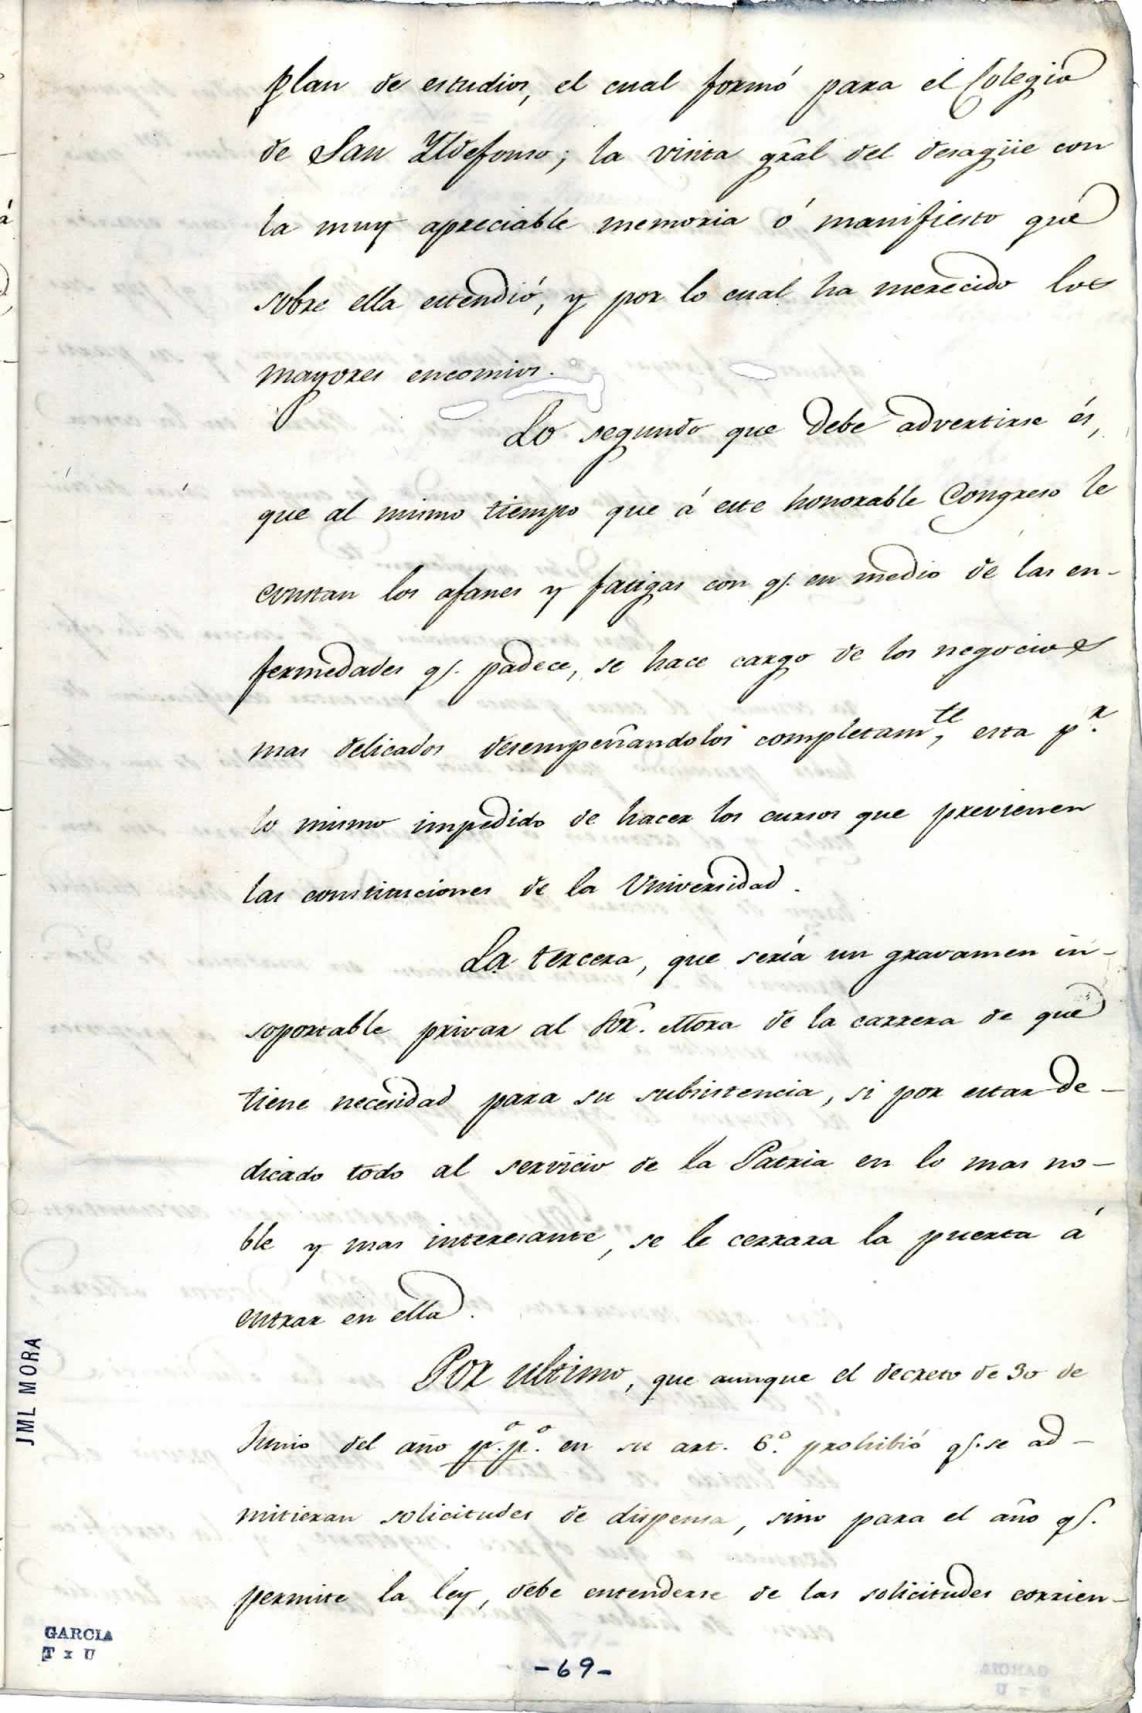 plan de estudios, el cual formó para el Colegio
de San Yldefonso; la visita grâl del desagüe con
la muy apreciable memoria ó manifiesto que
sobre ella estendió, y por lo cual ha merecido los
mayores encomios.
Lo segundo que debe advertirse és,
que al mismo tiempo que á este honorable Congreso le
constan los afanes y fatigas con q̱. en medio de las en-
fermedades q̱. padece, se hace cargo de los negocios
mas delicados desempeñandolos completamte, esta pr.
lo mismo impedido de hacer los cursos que previenen
las constituciones de la Universidad.
La tercera, que sería un gravamen in-
soportable privar al Sôr. Mora de la carrera de que
tiene necesidad para su subsistencia, si por estar de-
dicado todo al servicio de la Patria en lo mas no-
ble y mas interesante, se le cerrara la puerta á
entrar en ella.
Por ultimo, que aunque el decreto de 30 de
Junio del año p.º p.º en su art. 6.º prohibió q̱. se ad-
mitieran solicitudes de dispensa, sino para el año q̱.
permite la ley, debe entenderse de las solicitudes corrien-
JML MORA
GARCIA
T x U
-69-